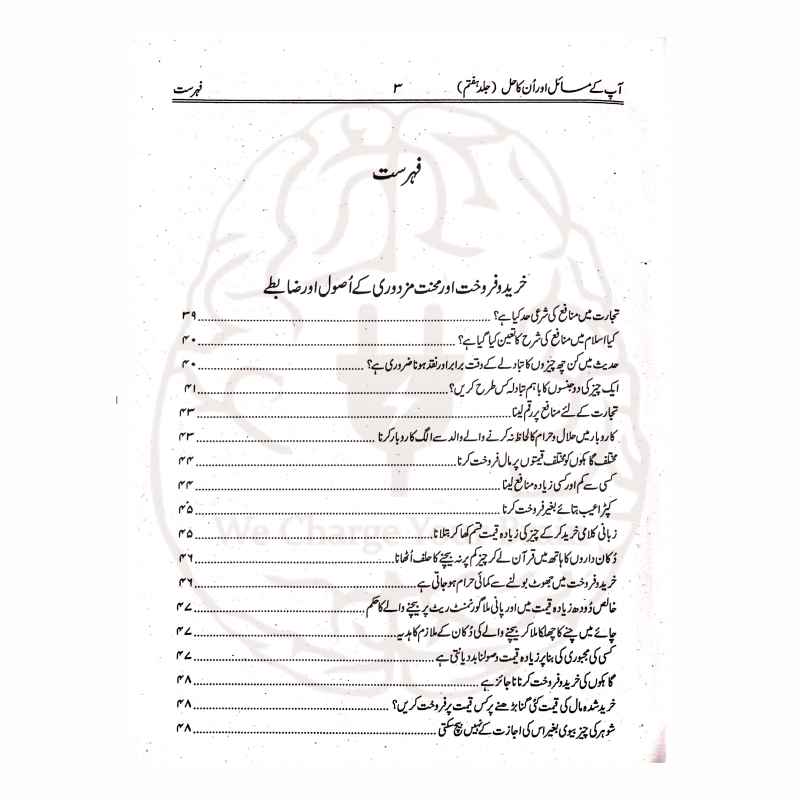 آپ کے مسائل اور اُن کا حل (جلد ہفتم) ۳ فہرست
فہرست
خرید و فروخت اور محنت مزدوری کے اُصول اور ضابطے
تجارت میں منافع کی شرعی حد کیا ہے؟ ۳۹
کیا اسلام میں منافع کی شرح کا تعین کیا گیا ہے؟ ۴۰
حدیث میں کن چھ چیزوں کا تبادلے کے وقت برابر اور نقد ہونا ضروری ہے؟ ۴۰
ایک چیز کی دو جنسوں کا باہم تبادلہ کس طرح کریں؟ ۴۱
تجارت کے لئے منافع پر رقم لینا ۴۳
کاروبار میں حلال و حرام کا لحاظ نہ کرنے والے والد سے الگ کاروبار کرنا ۴۳
مختلف گاہکوں کو مختلف قیمتوں پر مال فروخت کرنا ۴۴
کسی سے کم اور کسی زیادہ منافع لینا ۴۴
کپڑا عیب بتائے بغیر فروخت کرنا ۴۵
زبانی کلامی خرید کر کے چیز کی زیادہ قیمت قسم کھا کر بتلانا ۴۵
دُکان داروں کا ہاتھ میں قرآن لے کر چیز کم پر نہ بیچنے کا حلف اُٹھانا ۴۶
خرید و فروخت میں جھوٹ بولنے سے کمائی حرام ہوجاتی ہے ۴۶
خالص دُودھ زیادہ قیمت میں اور پانی ملا گورنمنٹ ریٹ پر بیچنے والے کا حکم ۴۷
چائے میں چنے کا چھلکا ملا کر بیچنے والے کی دُکان کے ملازم کا ہدیہ ۴۷
کسی کی مجبوری کی بنا پر زیادہ قیمت وصولنا بددیانتی ہے ۴۷
گاہکوں کی خرید و فروخت کرنا ناجائز ہے ۴۸
خرید شدہ مال کی قیمت کئی گنا بڑھنے پر کس قیمت پر فروخت کریں؟ ۴۸
شوہر کی چیز بیوی بغیر اس کی اجازت کے نہیں بیچ سکتی ۴۸
We Charge Your